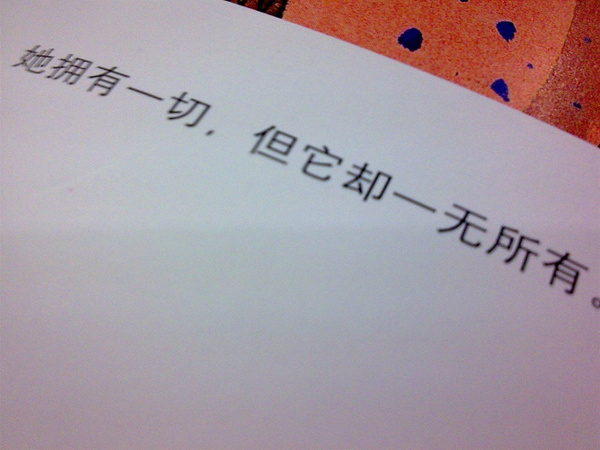 她拥有一切，但它却一无所有。